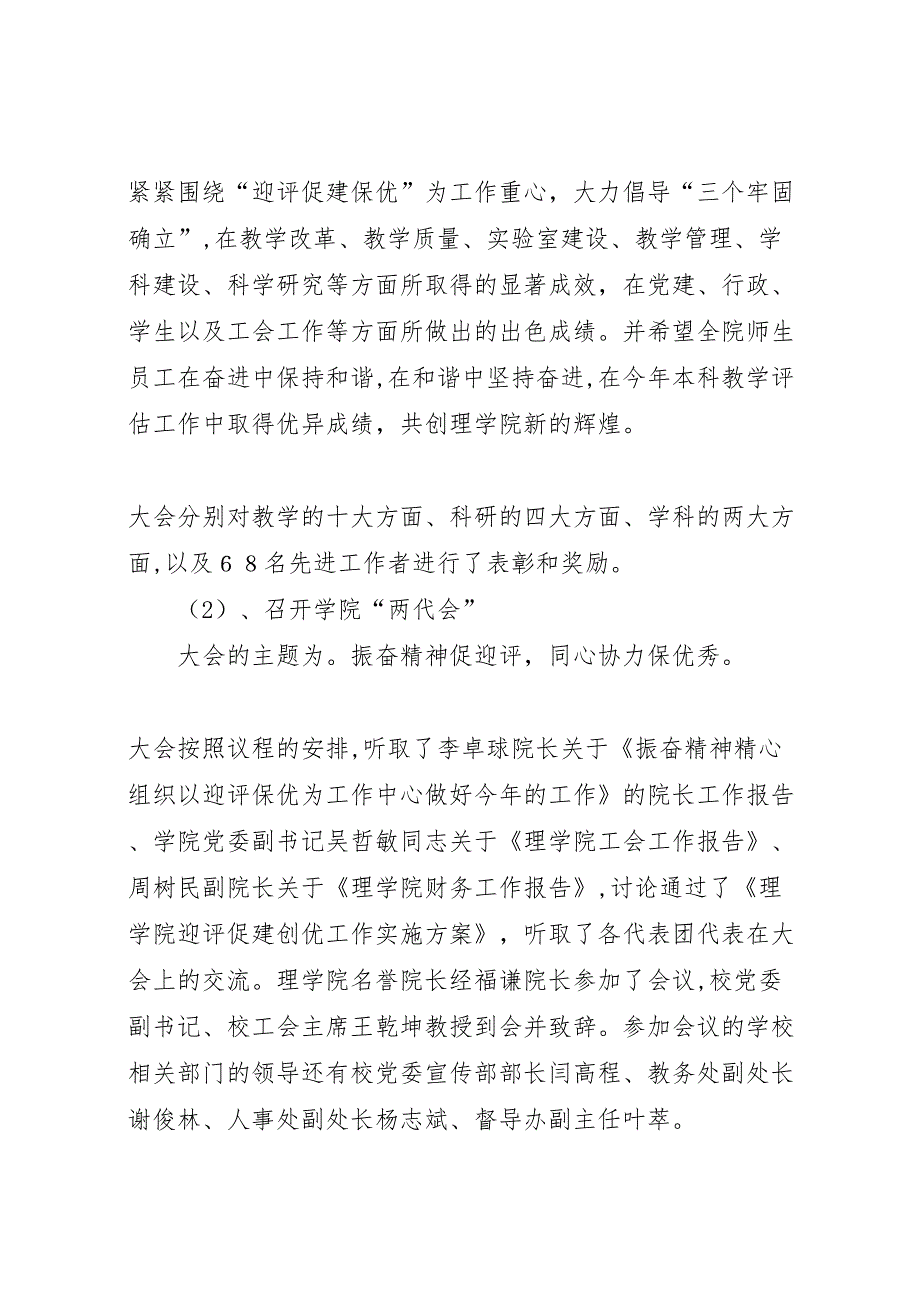 紧紧围绕“迎评促建保优”为工作重心，大力倡导“三个牢固
确立”,在教学改革、教学质量、实验室建设、教学管理、学
科建设、科学研究等方面所取得的显著成效，在党建、行政、
学生以及工会工作等方面所做出的出色成绩。并希望全院师生
员工在奋进中保持和谐,在和谐中坚持奋进,在今年本科教学评
估工作中取得优异成绩，共创理学院新的辉煌。
大会分别对教学的十大方面、科研的四大方面、学科的两大方
面,以及６８名先进工作者进行了表彰和奖励。
（2）、召开学院“两代会”
大会的主题为。振奋精神促迎评，同心协力保优秀。
大会按照议程的安排,听取了李卓球院长关于《振奋精神精心
组织以迎评保优为工作中心做好今年的工作》的院长工作报告
、学院党委副书记吴哲敏同志关于《理学院工会工作报告》、
周树民副院长关于《理学院财务工作报告》,讨论通过了《理
学院迎评促建创优工作实施方案》，听取了各代表团代表在大
会上的交流。理学院名誉院长经福谦院长参加了会议,校党委
副书记、校工会主席王乾坤教授到会并致辞。参加会议的学校
相关部门的领导还有校党委宣传部部长闫高程、教务处副处长
谢俊林、人事处副处长杨志斌、督导办副主任叶萃。